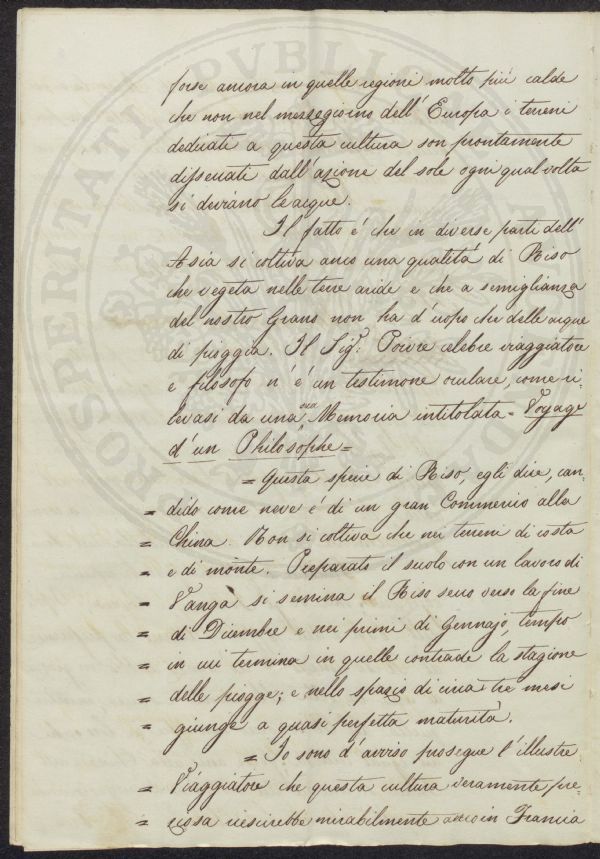 forse ancora in quelle regioni molto più calde
che non nel mezzogiorno dell'Europa i terreni
dedicati a questa cultura son prontamente
disseccati dall'azione del sole ogni qual volta
si devìano le acque.
Il fatto é che in diverse parti dell'
Asia si coltiva anco una qualità di Riso
che vegeta nelle terre aride e che a somiglianza
del nostro Grano non ha d'uopo che delle acque
di pioggia. Il Sig.r Poivre celebre viaggiatore
e filosofo n'é un testimone oculare, come ri-
levasi da una sua Memoria intitolata = Voyage
d'un Philosophe =
= Questa specie di Riso, egli dice, can-
= dido come neve é di un gran Commercio alla
= China. Non si coltiva che nei terreni di costa
= e di monte. Preparato il suolo con un lavoro di
= Vanga si semina il Riso secco verso la fine
= di Dicembre e nei primi di Gennajo, tempo
= in cui termina in quelle contrade la stagione
= delle piogge; e nello spazio di circa tre mesi
= giunge a quasi perfetta maturità.
= Io sono d'avviso prosegue l'illustre
= Viaggiatore che questa cultura veramente pre-
= ziosa riescirebbe mirabilmente anco in Francia
PROSPERITATI PVBLICAE